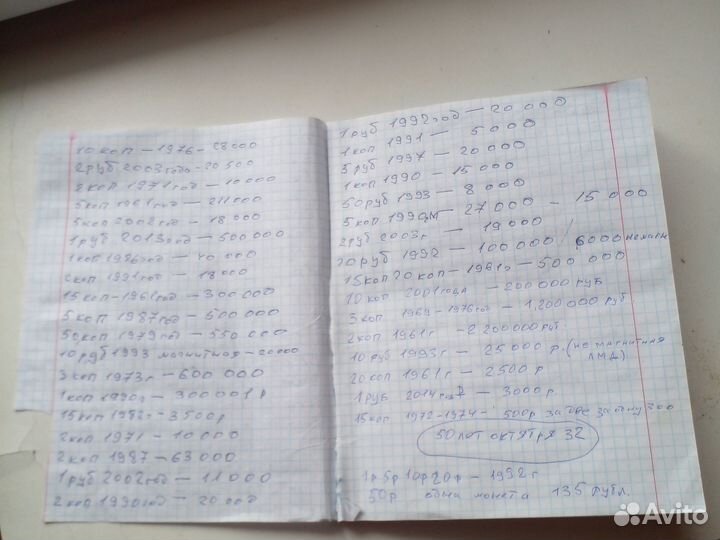 10 коп — 1976 - 28 000
2 руб 2003 года - 20 500
2 коп 1971 год — 10 000
5 коп 1961 год — 211 000
5 коп 2002 год — 18 000
1 руб. 2013 год — 500 000
1 коп 1986 год — 40 000
1991 год — 18 000
15 коп - 1961 год — 300 000
5 коп 1987 год — 500 000
50 коп 1979 год — 550 000
10 руб 1993 магнитная — 20000
3 коп 1973 г — 600 000
1 коп 1990 г — 300 001 р
15 коп 1982 г — 3500 р
2 коп 1971 — 10 000
2 коп 1987 — 63 000
1 руб 2002 год — 11 000
2 коп 1990 год — 20 000
1 руб 1992 год — 20 000
1 коп 1991 — 5 000
5 руб 1997 — 20 000
1 коп 1990 — 15 000
50 руб 1993 — 8 000
5 коп 1990 М — 27 000 — 15 000
2 руб 2003 г — 19 000
20 руб 1992 — 100 000 / 6000
15 коп 20 коп — 1961 г — 500 000
10 коп 2001 года — 200 000 руб
3 коп 1964 - 1976 год — 1,200 000 руб
2 коп 1961 г — 2 200000 руб.
10 руб 1993 г — 25 000 р. (не магнитная ЛМД)
20 коп 1961 г — 2500 р
1 руб 2014 год ₽ — 3000 р.
15 коп 1972 - 1974 — 500 р за две за одну 300
50 лет октября 32
1 р 5 р 10 р 20 р — 1992 г
50 р одна монета 135 рубл.
Avito